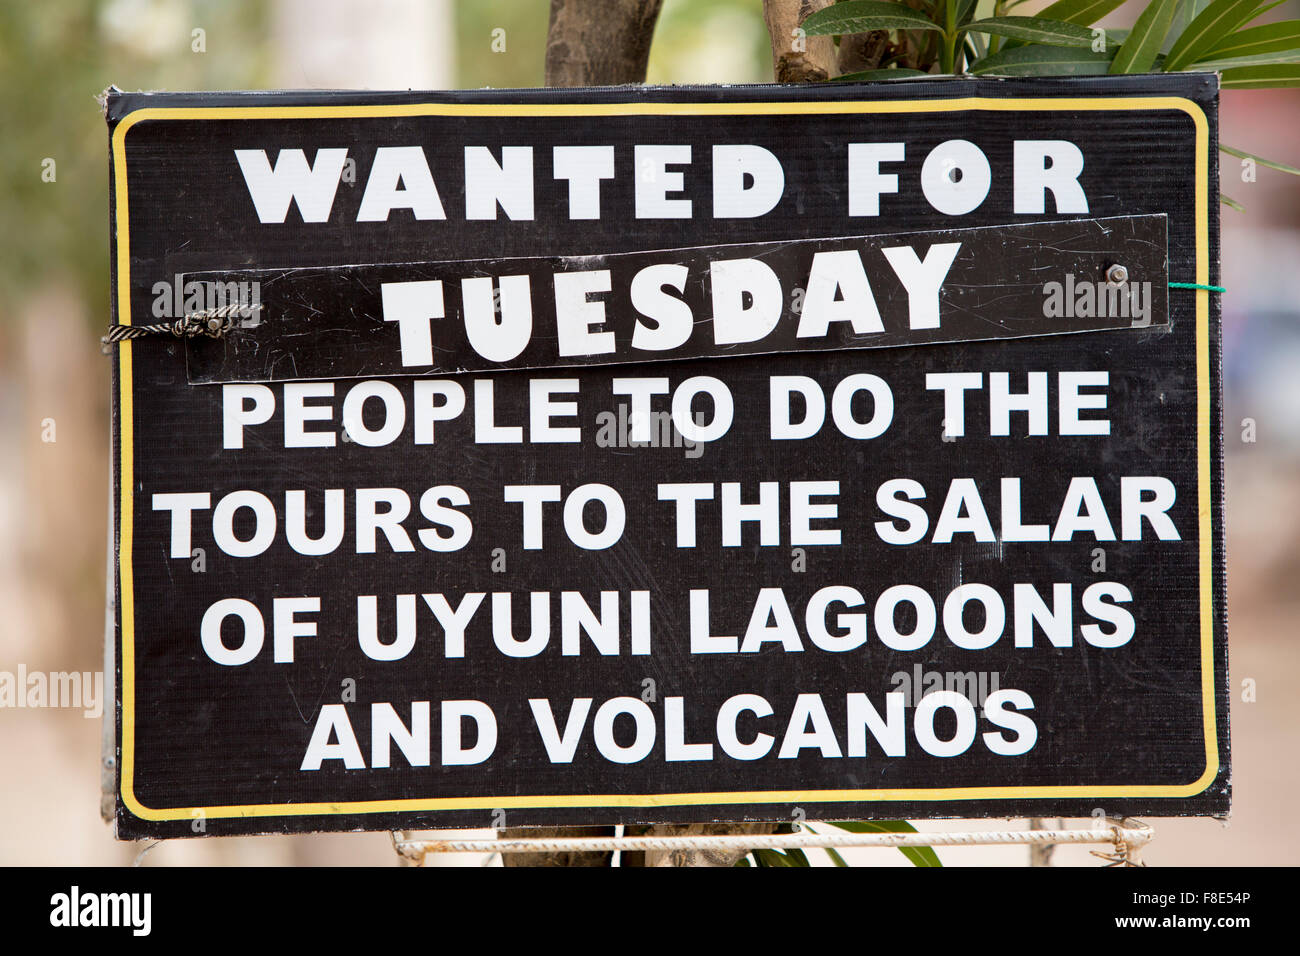 WANTED FOR
TUESDAY
PEOPLE TO DO THE
TOURS TO THE SALAR
OF UYUNI LAGOONS
AND VOLCANOS
alamy
Image ID: F8E54P
www.alamy.com